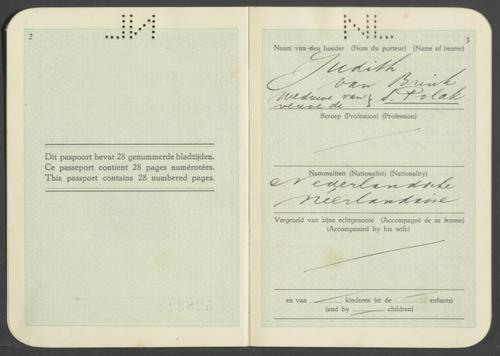 2
NL
Dit paspoort bevat 28 genummerde bladzijden.
Ce passeport contient 28 pages numérotées.
This passport contains 28 numbered pages.
NL
3
Naam van den houder (Nom du porteur) (Name of bearer)
Judith
van Brink
Weduwe van } S. Polak
veuve de
Beroep (Profession) (Profession)
Nationaliteit (Nationalité) (Nationality)
Nederlandsche
Néerlandaise
Vergezeld van zijne echtgenoote (Accompagné de sa femme)
(Accompanied by his wife)
en van kinderen (et de enfants)
(and by children)